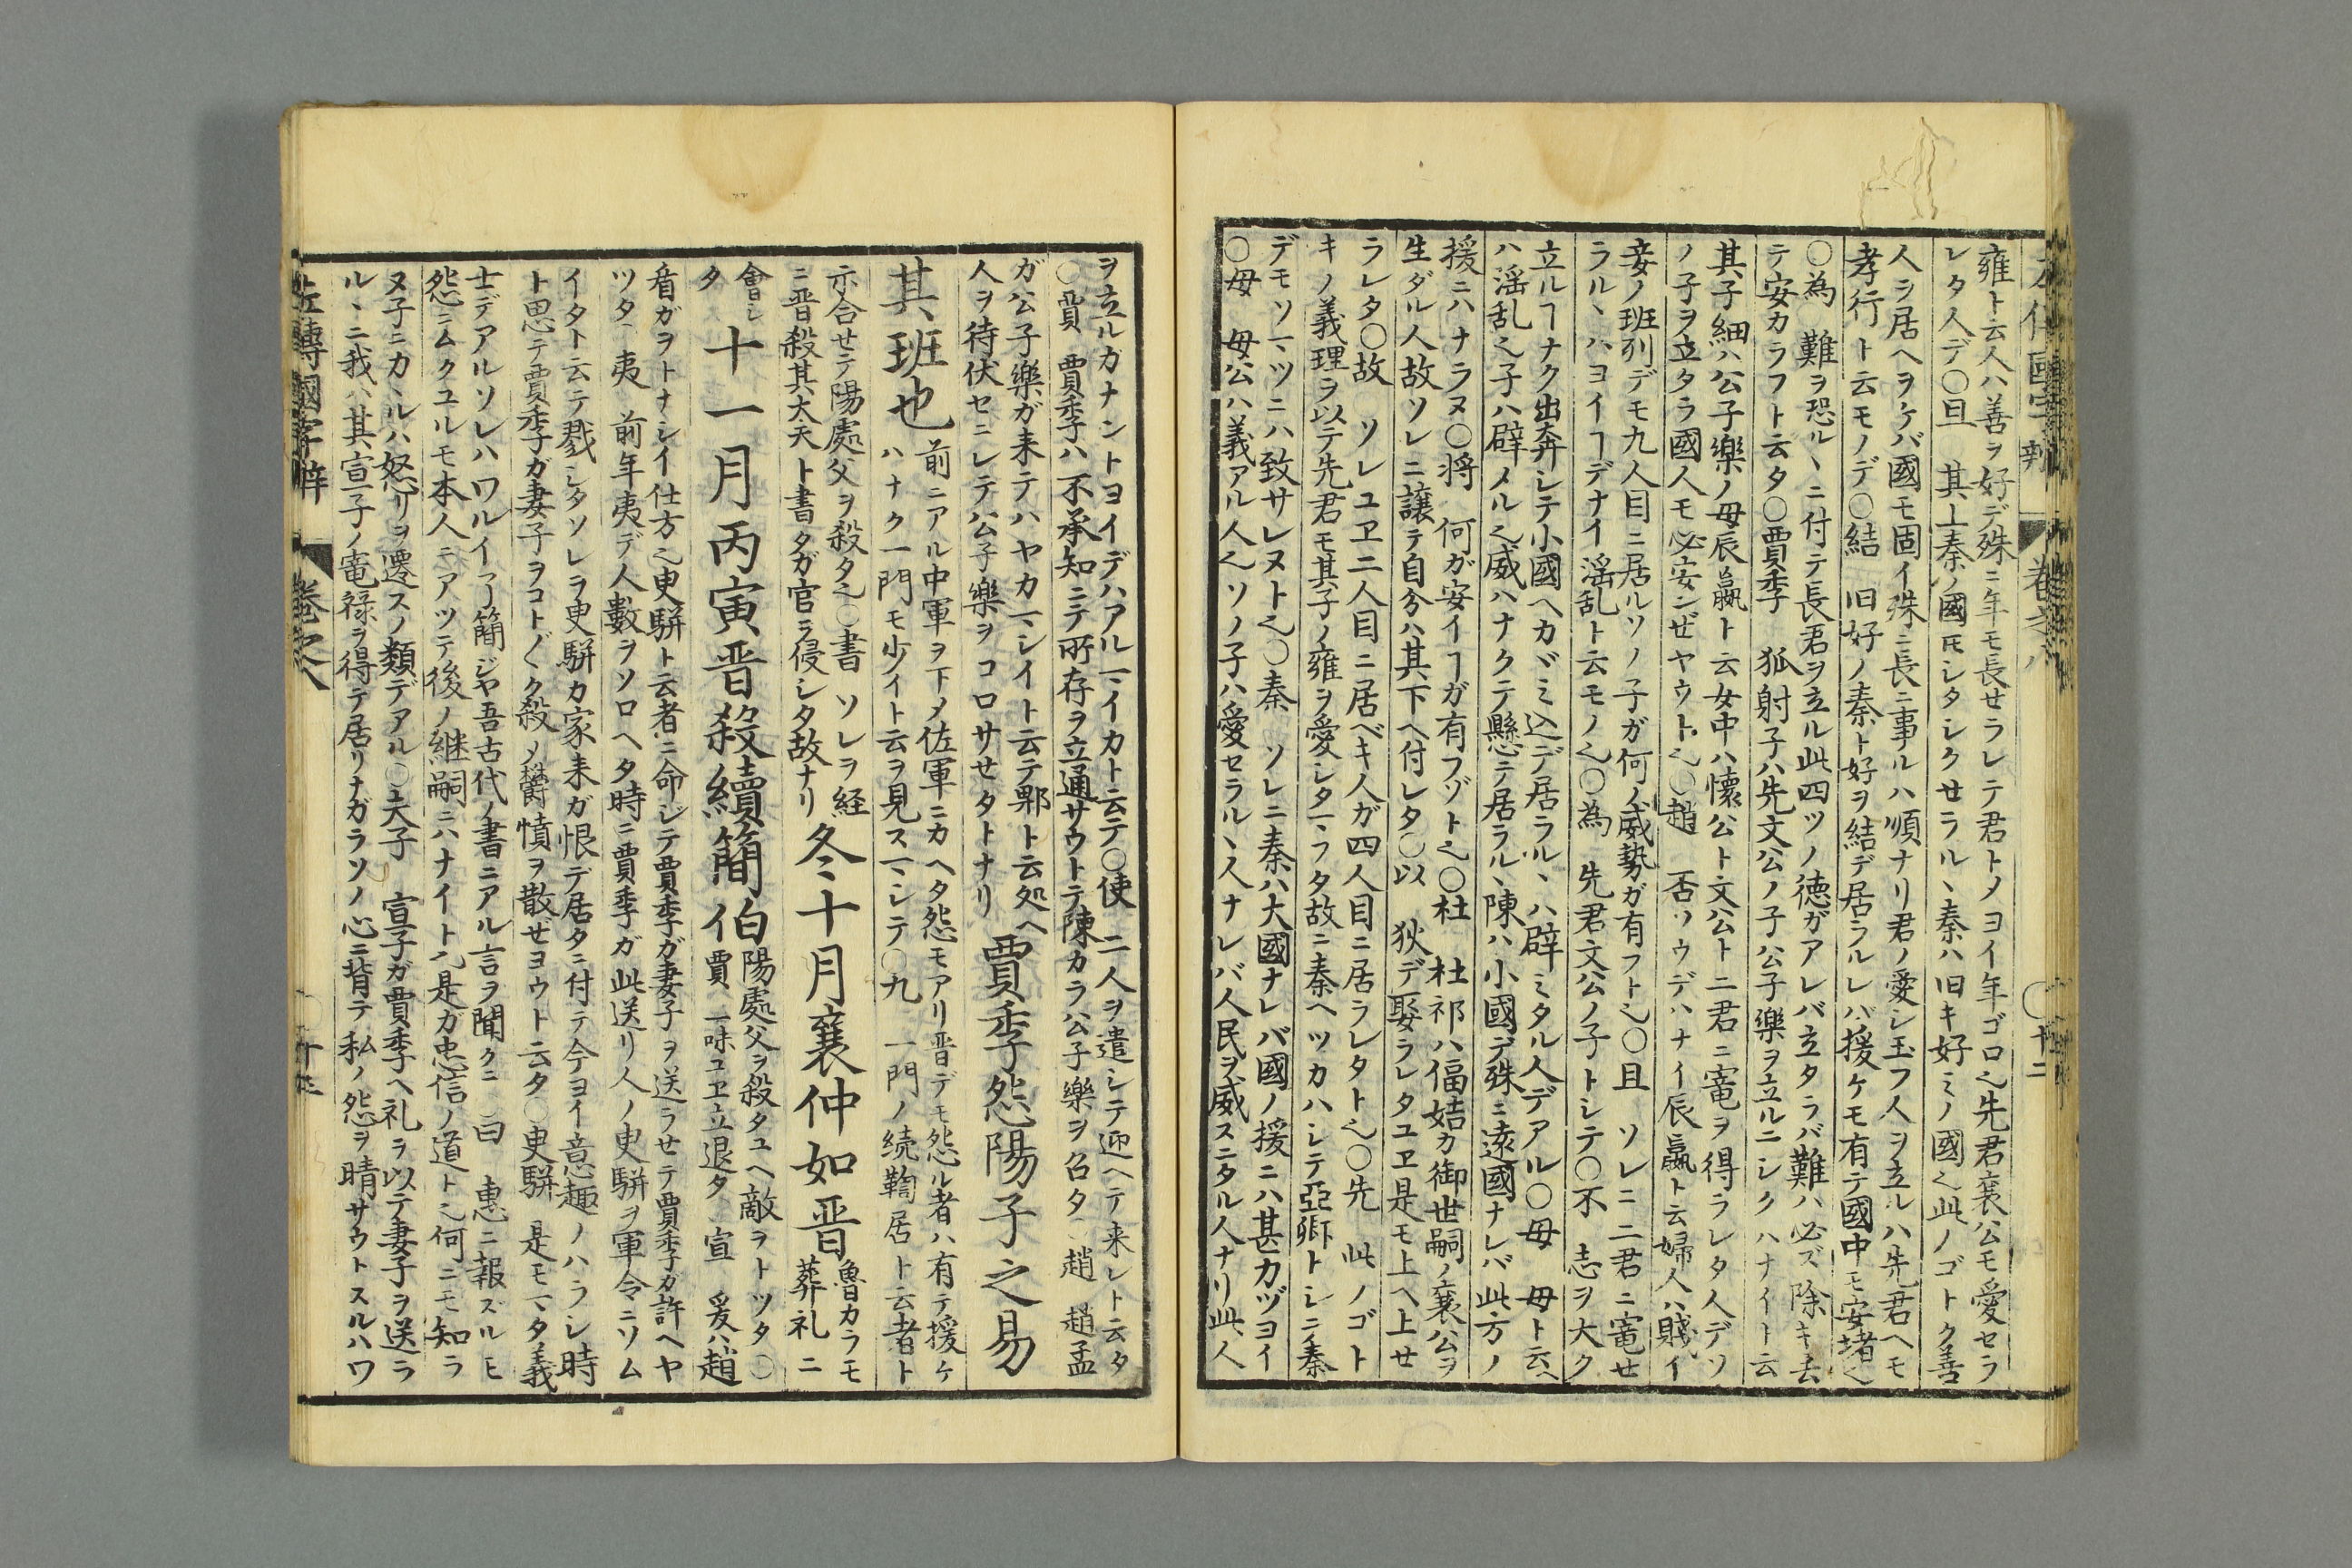 雍ト云人ハ善ヲ好デ殊ニ年モ長せラレテ君トメヨイ年ゴロ〻先君襄公モ愛セラ
レタ人デ〇旦 其上秦ノ國ヱシタシクせラル丶秦ハ旧キ好ミノ國〻此ノゴトク善
人ヲ居ヘヲケバ國モ固イ殊ニ長ニ事ルハ順ナリ君ノ愛シ玉フ人ヲ立ルハ先君ヘモ
孝行ト云モノデ〇結 旧好ノ秦ト好ヲ結デ居ラルレバ援ケモ有テ國中モ安堵〻
〇為 難ヲ恐ル丶ニ付テ長君ヲ立ル此四ツノ徳ガアレバ立タラバ難ハ必ズ除キ去
テ安カラフト云タ〇賈季 狐射子ハ先文公ノ子公子樂ヲ立ルニシクハナイト云
其子細ハ公子樂ノ母辰嬴ト云女中ハ懷公ト文公ト二君ニ寵ヲ得ラレタ人デソ
ノ子ヲ立タラ國人モ必安ンぜヤウト〻〇趙 否ソウデハナイ辰嬴ト云婦人ハ賤イ
妾ノ班列デモ九人目ニ居ルソノ子ガ何ノ威勢ガ有フト〻〇且 ソレニ二君ニ寵せ
ラル丶ハヨイヿデナイ淫乱ト云モノ〻〇為 先君文公ノ子トシテ〇不 志ヲ大ク
立ルヿナク出奔シテ小國ヘカヾミ込デ居ラル丶ハ辟ミタル人デアル〇母 母ト云ヘ
ハ淫乱〻子ハ辟メル〻威ハナクテ懸テ居ラル丶陳ハ小國デ殊ニ遠國ナレバ此方ノ
援ニハナラヌ〇将 何ガ安イヿガ有フゾト〻〇杜 杜祁ハ偪姞カ御世嗣ノ襄公ヲ
生ダル人故ソレニ讓テ自分ハ其下ヘ付レタ〇以 狄デ娶ラレタユヱ是モ上ヘ上せ
ラレタ〇故 ソレユヱ二人目ニ居ベキ人ガ四人目ニ居ラレタト〻〇先 此ノゴト
キノ義理ヲ以テ先君モ其子ノ雍ヲ愛シタマフタ故ニ秦ヘツカハシテ亞卿トシ秦
デモソマヅニハ致サレヌト〻〇秦 ソレニ秦ハ大國ナレバ國ノ援ニハ甚カヅヨイ
〇母 母公ハ義アル人〻ソノ子ハ愛セラル丶人ナレバ人民ヲ威スニタル人ナリ此人
ヲ立ルガナントヨイデハアルマイカト云テ〇使 二人ヲ遣シテ迎ヘテ来レト云タ
〇賈 賈季ハ不承知ニテ所存ヲ立通サウトテ陳カラ公子樂ヲ召タ〇趙 趙孟
ガ公子樂ガ来テハヤカマシイト云テ郫ト云処ヘ
人ヲ待伏せニシテ公子樂ヲコロサせタトナリ 賈季怨陽子之易
其班也 前ニアル中軍ヲ下メ佐軍ニカヘタ怨モアリ晋デモ怨ル者ハ有テ援ケ
ハナク一門モ少イト云ヲ見スマシテ〇九 一門ノ続鞫居ト云者ト
示合せテ陽處父ヲ殺タ〻〇書 ソレヲ経
ニ晋殺其大夫ト書タガ官ヲ侵シタ故ナリ 冬十月襄仲如晋 魯カラモ
葬礼ニ
會シ
タ 十一月丙寅晋殺續簡伯 陽處父ヲ殺タユヘ敵ヲトツタ〇
賈 一味ユヱ立退タ 宣 爰ハ趙
盾ガヲトナシイ仕方〻臾駢ト云者ニ命ジテ賈季ガ妻子ヲ送ラせテ賈季カ許ヘヤ
ツタ〇夷 前年夷デ人數ヲソロヘタ時ニ賈季ガ此送リ人ノ臾駢ヲ軍令ニソム
イタト云テ戮シタソレヲ臾駢カ家来ガ恨デ居タニ付テ今ヨイ意趣ノハラシ時
ト思テ賈季ガ妻子ヲコト〲ク殺メ欝憤ヲ散ぜヨウト云タ〇臾駢 是モマタ義
士デアルソレハワルイ了簡ジヤ吾古代ノ書ニアル言ヲ聞クニ 曰 惠ニ報ズルモ
怨ニムクユルモ本人ニアツテ後ノ継嗣ニハナイト八是ガ忠信ノ道ト〻何ニモ知ラ
ヌ子ニカヽルハ怒リヲ遷スノ類デアル〇夫子 宣子ガ賈季ヘ礼ヲ以テ妻子ヲ送ラ
ル丶ニ我ハ其宣子ノ寵禄ヲ得テ居リナガラソノ心ニ背テ私ノ怨ヲ晴サウトスルハワ
左傳國字辯 巻之八